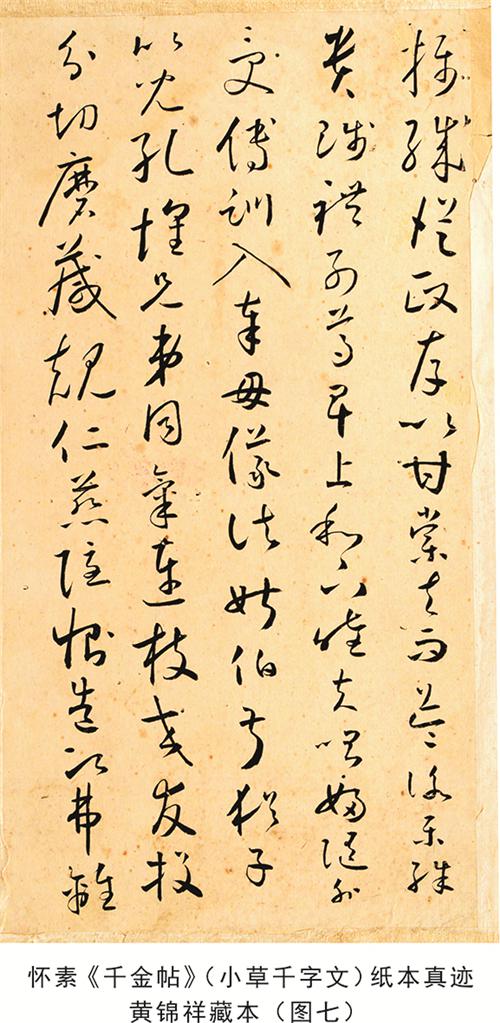 攝職從政存以甘棠去而益詠樂殊
貴賤禮別尊卑上和下睦夫唱婦隨外
受傅訓入奉母儀諸姑伯叔猶子
比兒孔懷兄弟同氣連枝交友投
分切磨箴規仁慈隱惻造次弗離
怀素《千金帖》（小草千字文）纸本真迹
黄锦祥藏本（图七）